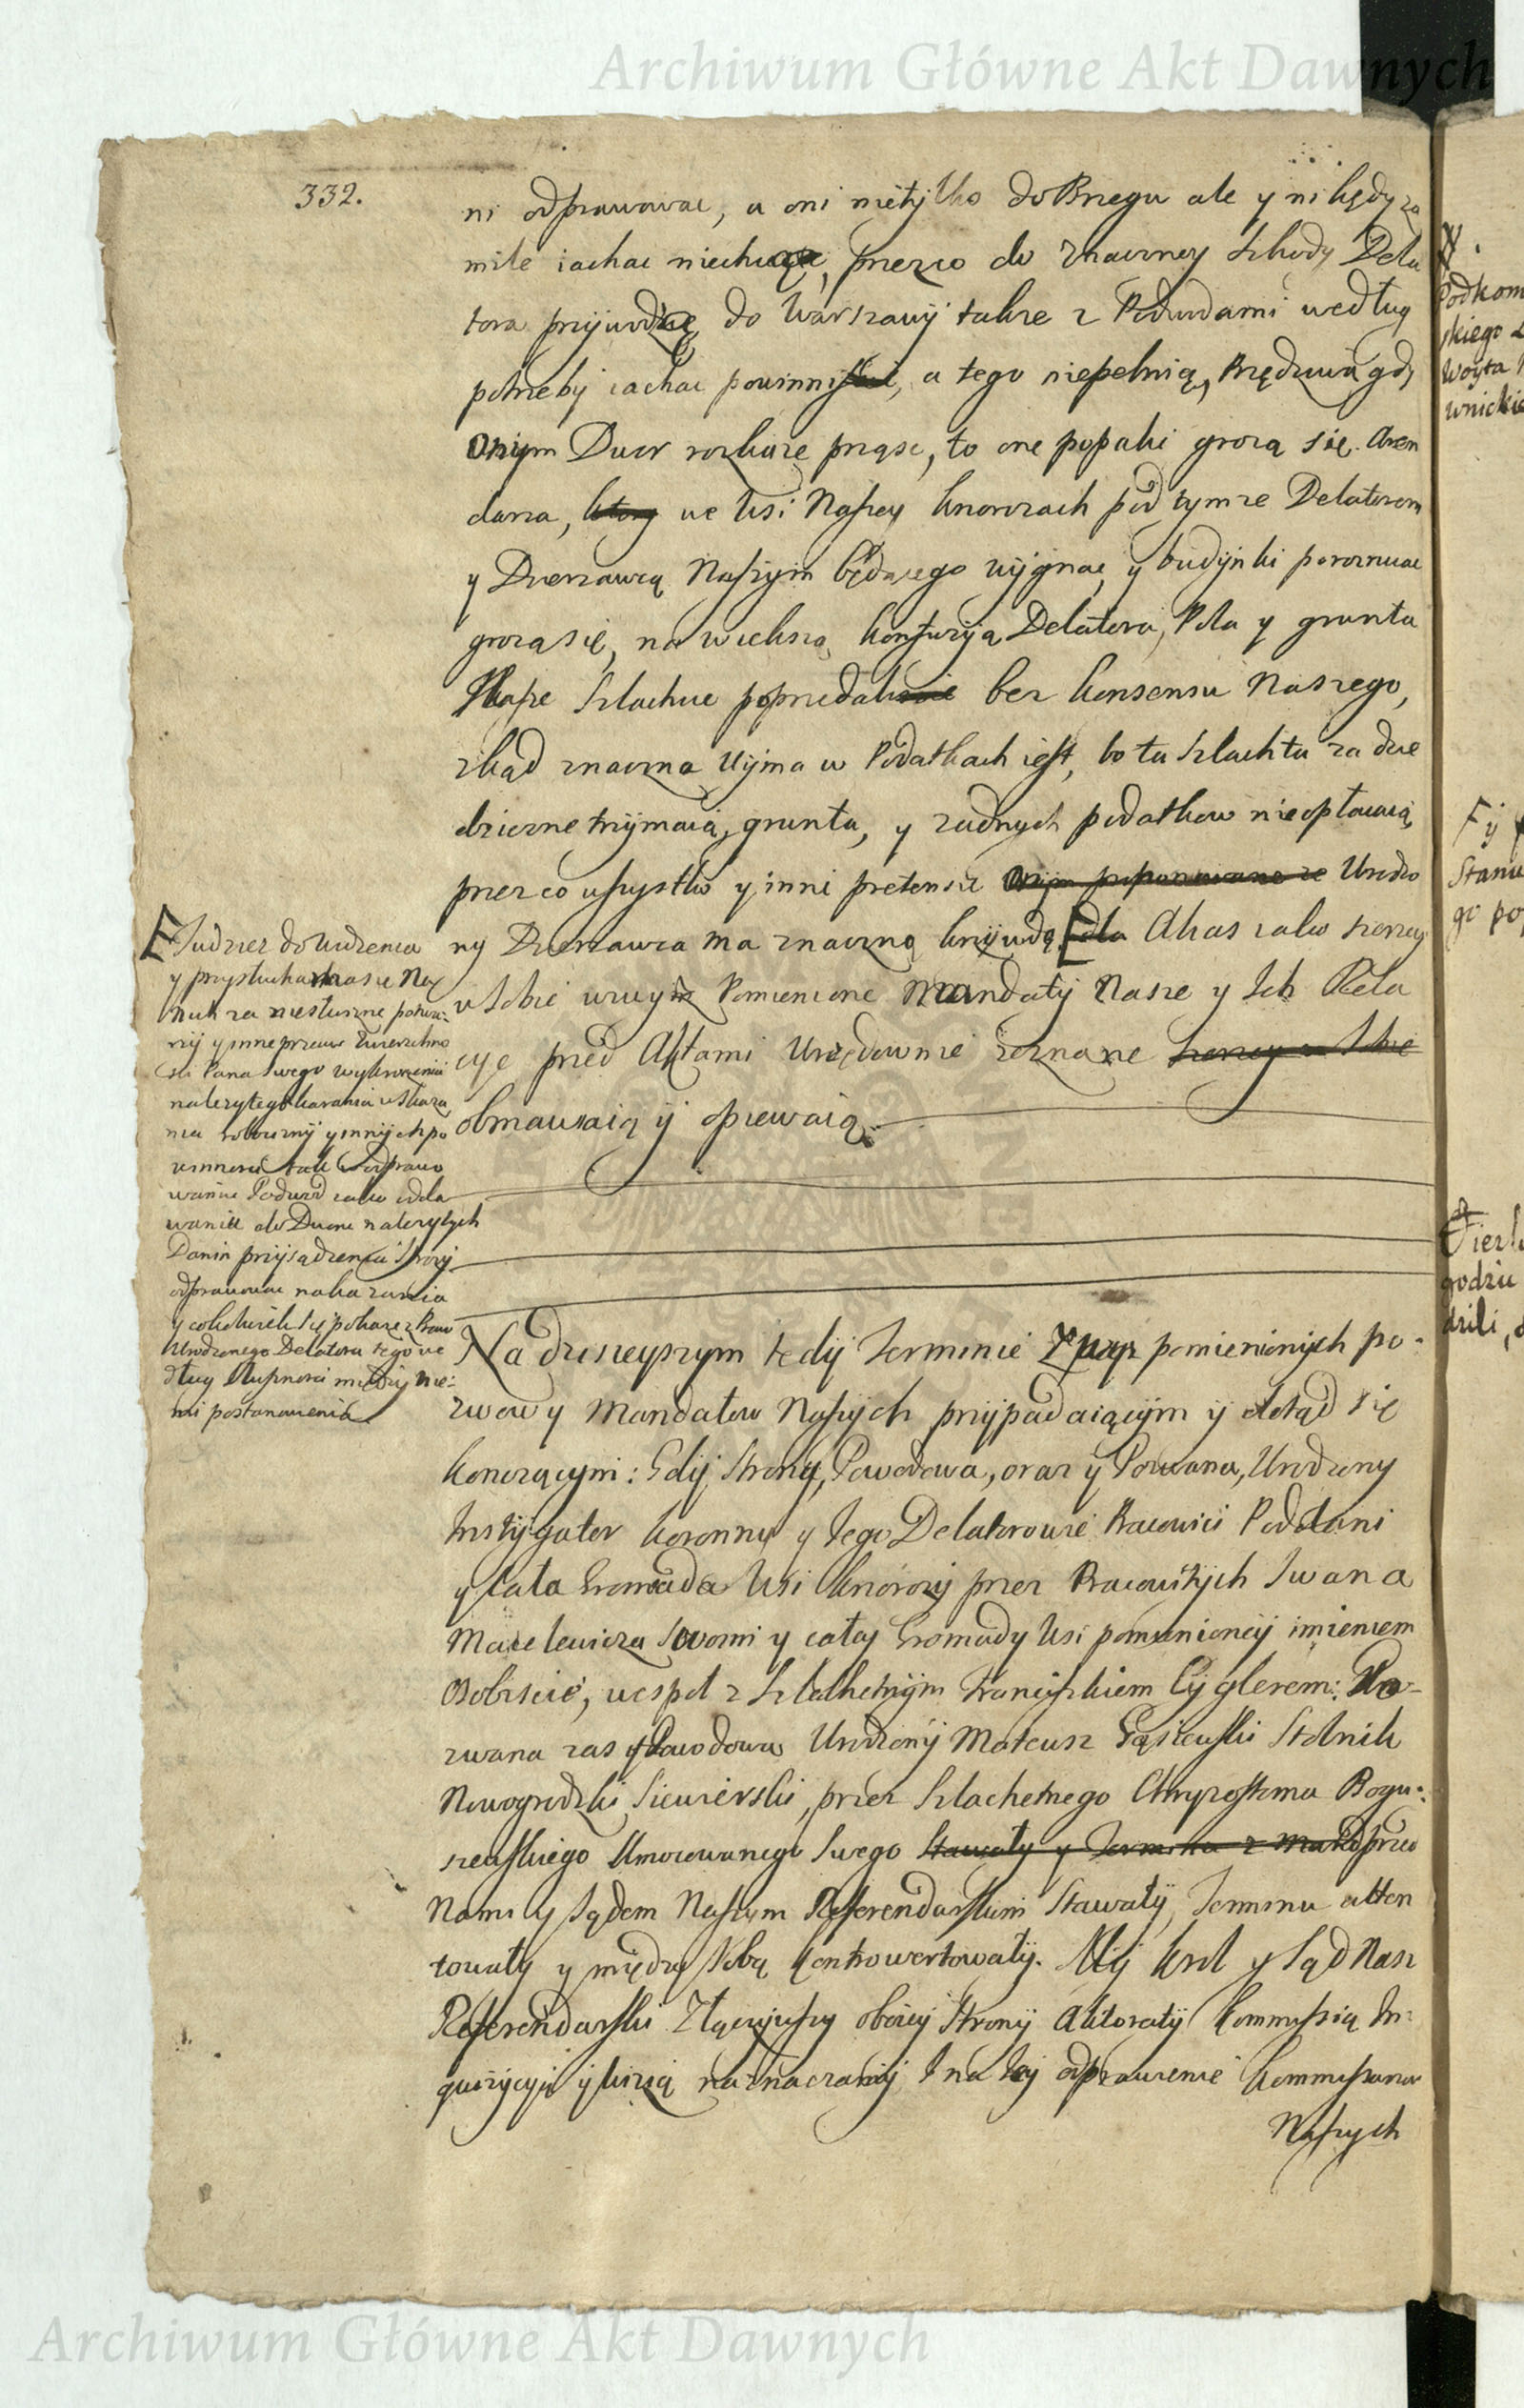 Archiwum Główne Akt Dawnych
332.
ni odprawowac, a oni nietylko do Brzegu ale y nikędy za
mile iachac niechcą, przezco do znaczney szkody Dela
tora przywodzą, do Warszawy takze z Podwodami według
potrzeby iachac powinni, a tego niepełnią, Przędziwa gdy
Onym Dwor rozkaze prząsc, to one popalic grozą się. Aren
darza, ktory we Wsi Naszey Knorozach pod tymze Delatorem
y Dzerzawcą Naszym będącego wygnac, y budynki porozrucac
grozą się, na wieksza konfuzyią Delatora, Pola y grunta
Nasze Szlachcie poprzedali bez konsensu Naszego,
zkąd znaczna Uyma w Podatkach iest, bo ta Szlachta za dzie
dziczne trzymaią grunta, y zadnych podatkow nieopłacaią,
przez co wszystko y inni pretensie Urodzo
ny Dzerzawca ma znaczną krzywdę Akas iako szerzey
w Sobie wzwyz Pomienione Mandaty Nasze y Ich Rela
cye przed Aktami Urzędownie zeznane szerzey w Sobie
obmawiaią y opiewaią.
Tudziez do widzenia
y przysłuchania się Na
nich za niesłuszne
y inne przeciw Zwierzchno
sci Pana Swego wykroczenia
nalezytego karania wskaza
nia robocizny y innych po
winnosci tak w odprawo
waniu Podwod iako odda
waniu do Dworu nalezytych
Danin przysądzenia Strozy
odprawowac nakazania
y cokolwiek się pokaze z Praw
Urodzonego Delatora tego we
dług słusznosci między nie:
mi postanowienia
Na dzisieyszym tedy Terminie z pomienionych po-
zwow y Mandatow Naszych przypadaiącym y dotąd się
konczącym: Gdy Strony, Powodowa, oraz y Pozwana, Urodzony
Instygator Koronny y Iego Delatorowie Pracowici Poddani
y cała Gromada Wsi Knorozy przez Pracowitych Iwana
Macelewicza Swoim y całey Gromady Wsi pomienioney imieniem
Osobiscie, wespoł z Szlachetnym Franciszkiem Cyglerem: Po-
zwana zas y Powodowa Urodzony Mateusz Gąsiewski Stolnik
Nowogrodzki Siewierski, przez Szlachetnego Chryzostoma Bogu:
szewskiego Umocowanego Swego Stawały y przed
Nami y Sądem Naszym Referendarskim Stawały, Terminu atten
towały y między Sobą kontrowertowały. My Krol y Sąd Nasz
Referendarski Złączywszy obiey Strony Aktoraty Kommissią In
quizycyią y wizią naznaczamy I na tey odprawienie Kommissarzow
Naszych
Podkom
skiego
Woyta
wnickie
go po
godziu
dzili,
Archiwum Główne Akt Dawnych